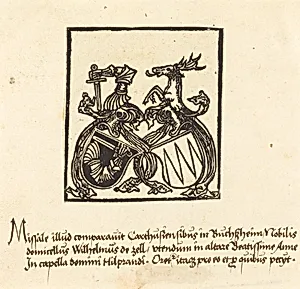 Missale illud comparavit Carthusiensibus in Buchßheim Nobilis
domicellus Wilhelmus de zell, utendum in altare Beatissime Anne
In capella domini Hilprandi. Oret itaque pro eo et pro quibus petit.